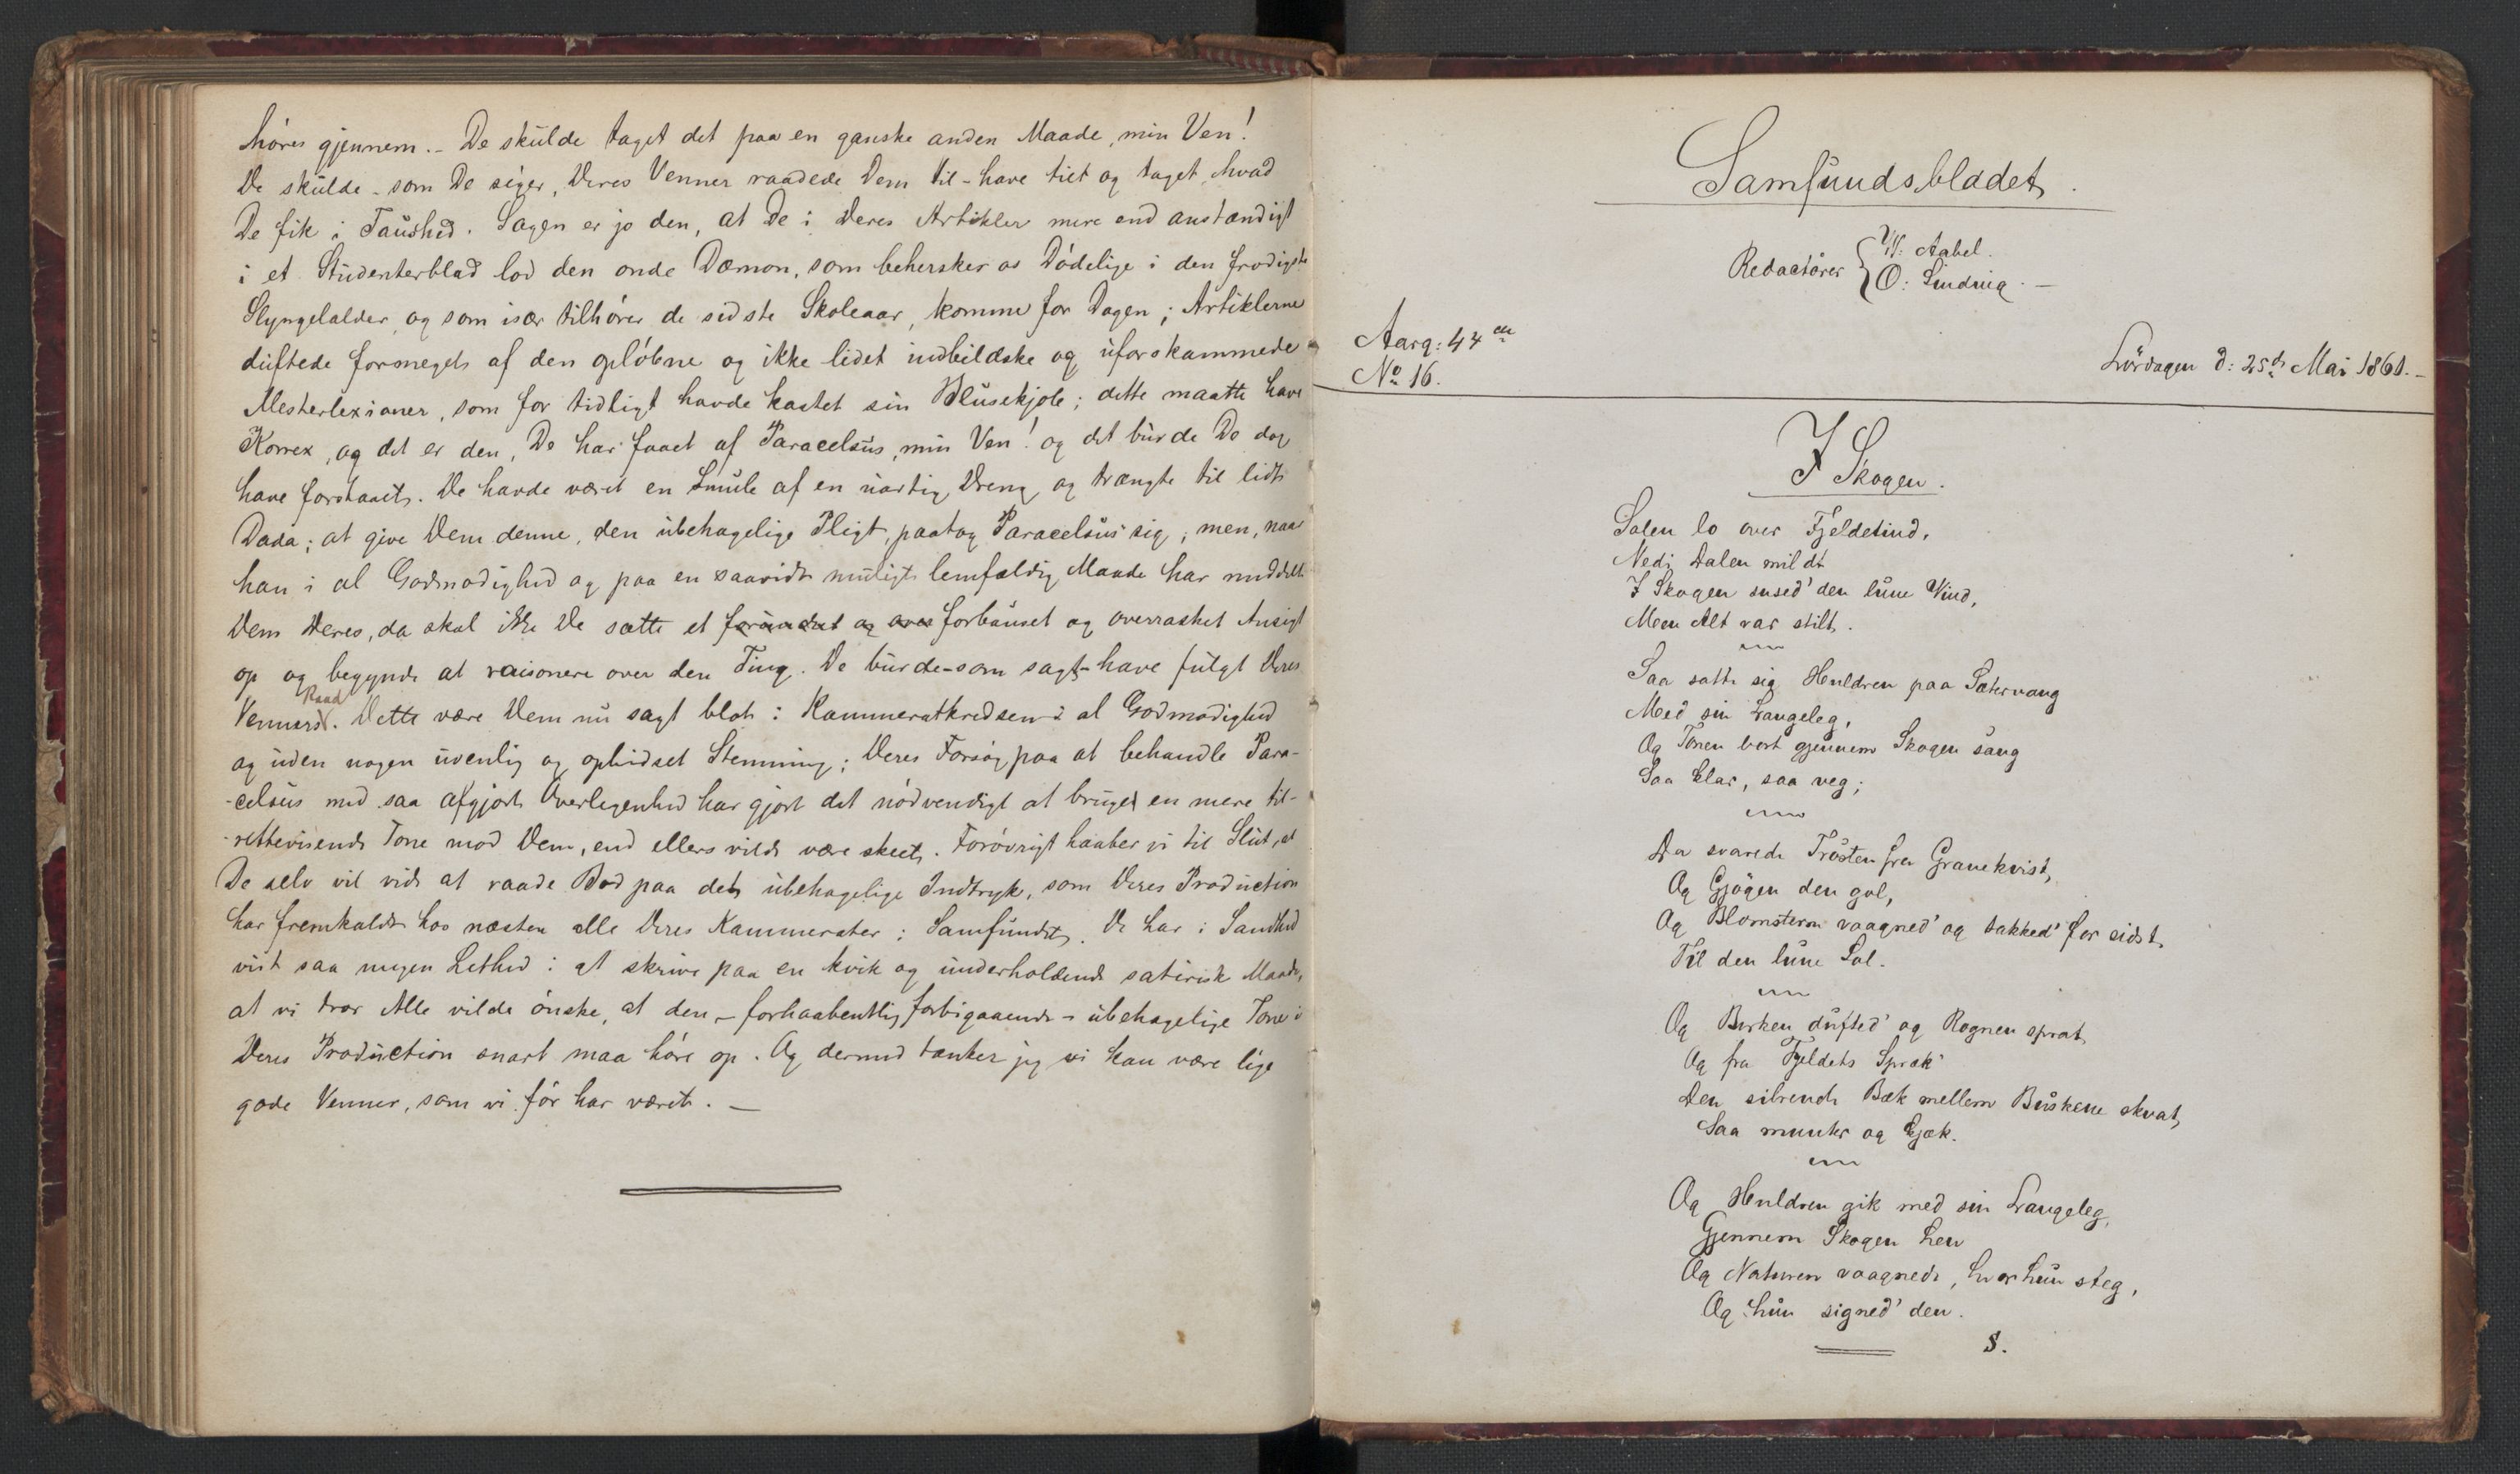 høres gjennem. - De skulde taget det paa en ganske anden Maade, min Ven!
De skulde - som De siger, Deres Venner raadede Dem til - have tiet og taget hvad
De fik i Taushed. Sagen er jo den, at De i Deres Artikler mere end anstændigt
i et Studenterblad lod den onde Dæmon, som behersker os Dødelige i den frodigste
Slyngelalder, og som især tilhører de sidste Skoleaar, komme for Dagen; Artiklerne
duftede formeget af den opløbne og ikke lidet indbildske og uforskammede
Mesterlexianer, som for tidligt havde kastet sin Blusekjole; dette maatte have
Korrex, og det er den, De har faaet af Paracelsus, min Ven! og det burde De dog
have forstaaet. De havde været en Smule af en uartig Dreng og trængte til lidt
Dada; at give Dem denne, den ubehagelige Pligt, paatog Paracelsus sig; men, naar
han i al Godmodighed og paa en saavidt muligt lemfældig Maade har meddelt
Dem Deres, da skal ikke De sætte et forundret og over forbauset og overrasket Ansigt
op og begynde at raisonere over den Ting. De burde - som sagt - have fulgt Deres
Venners Raad. Dette være Dem nu sagt blot i Kammeratkredsen i al Godmodighed
og uden nogen uvenlig og ophidset Stemning; Deres Forsøg paa at behandle Para-
-celsus med saa afgjort Overlegenhed har gjort det nødvendigt at bruge en mere til-
-rettevisende Tone mod Dem, end ellers vilde være skeet. Forøvrigt haaber vi til Slut, at
De selv vil vide at raade Bod paa det ubehagelige Indtryk, som Deres Production
har fremkaldt hos næsten alle Deres Kammerater i Samfundet. De har i Sandhed
vist saa megen Lethed i at skrive paa en kvik og underholdende satirisk Maade,
at vi tror Alle vilde ønske, at den - forhaabentlig forbigaaende - ubehagelige Tone i
Deres Production snart maa høre op. Og dermed tænker jeg vi kan være lige
gode Venner, som vi før har været. —
Samfundsbladet.
Redactører { W: Aabel.
O: Lindvig. —
Aarg: 44de
No 16.
Lørdagen d: 25de Mai 1861. -
I Skogen.
Solen lo over Fjeldetind,
Ned i Dalen mildt
I Skogen sused' den lune Vind,
Men Alt var stilt.
Saa satte sig Huldren paa Sætervang
Med sin Langeleg,
Og Tonen bort gjennem Skogen sang
Saa klar, saa veg;
Da svarede Trosten fra Granekvist,
Og Gjøgen den gol,
Og Blomstern vaagned' og takked' for sidst
Til den lune Sol.
Og Birken dufted' og Rognen sprat
Og fra Fjeldets Spræk'
Den silrende Bæk mellem Buskene skvat,
Saa munter og kjæk.
Og Huldren gik med sin Langeleg,
Gjennem Skogen hen
Og Naturen vaagnede, hvor hun steg,
Og hun signed' den.
S.